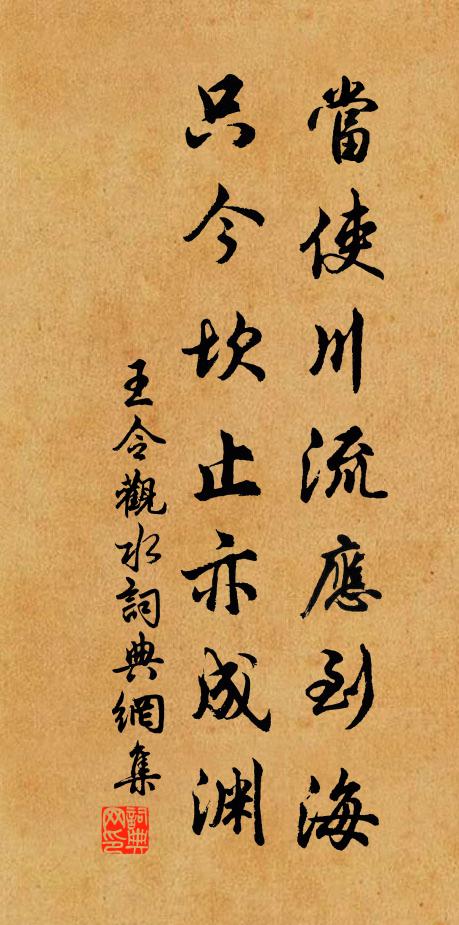 當使川流應到海
只今坎止亦成渊
王令觀水詞典網集
詞典网印